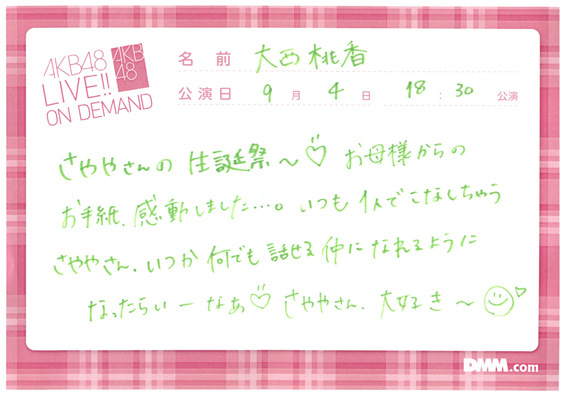 AKB48
LIVE!!
ON DEMAND
AKB
48
名前 大西桃香
公演日 9月4日 18:30 公演
さややさんの生誕祭〜♡ お母様からの
お手紙、感動しました…。いつも1人でこなしちゃう
さややさん、いつか何でも話せる仲になれるように
なったらいーなぁ♡ さややさん、大好き〜
DMM.com